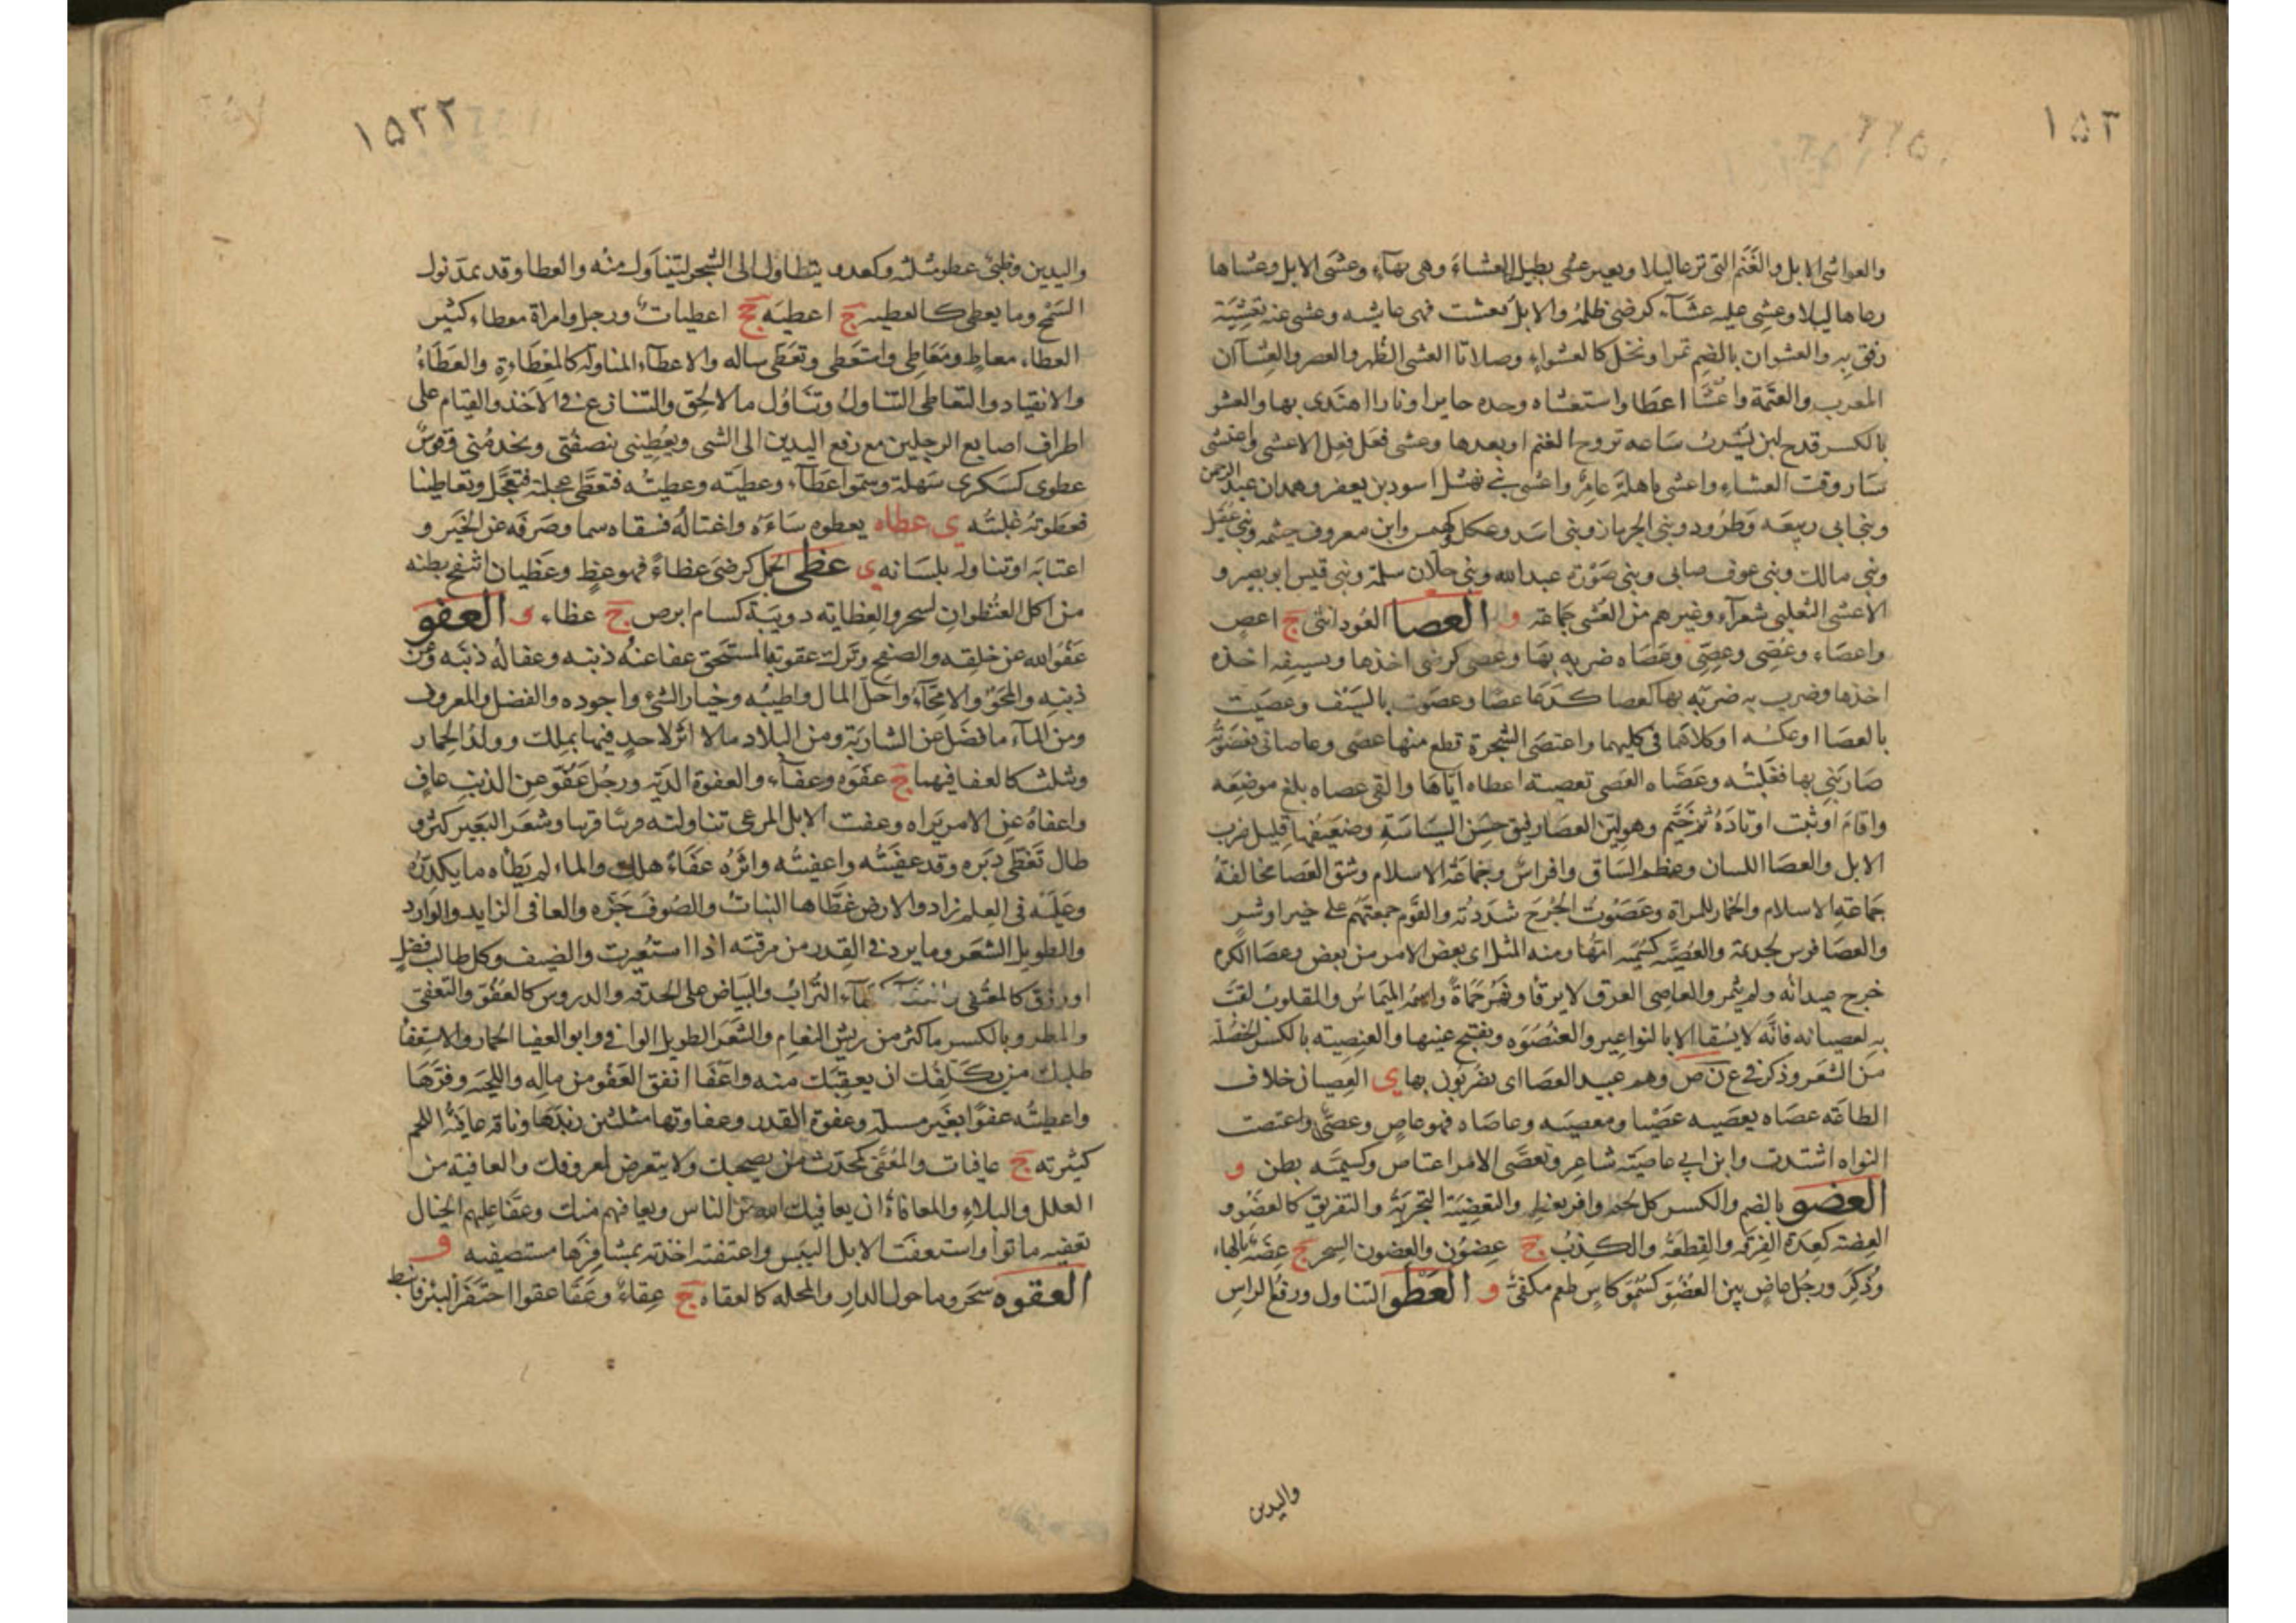 ١٥٣
والعواشى الابل والغَنَم التى ترعا ليلا وبعير عشى يطيل العشاءَ وهى بهآءٍ وعشى الابل وعشاها
رعاها ليلا وعشِى عليه عشَآء كرضى ظلمهُ والابل تعشت فهى عاشيه وعشى عنه تعشِيَة
رفق بِه والعشوان بالضم تمرا ونخل كالعشواءِ وصلاتا العشى الظُهر والعصر والعِشآآن
المغرب والعتَمة واعْشَا اعطَا واستعشاه وجده حايرا ونارا اهتدى بها والعشو
بالكسر قدح لبن يُشْرب سَاعه تروح الغنم او بعدها وعشى فعَل فعِل الاعشى واعتشى
سَار وقت العشاءِ واعشى باهلةَ عامِرٌ واعشى بنى نهشل اسود بن يعفر وهمدان عبد الرحمن
وبنى ابى ربيعَه وَطرُود وبنى الحِرماز وبنى اسَد وعكل كهمس وابن معروف خيثمه وبنى عقيل
وبنى مالك وبنى عوف ضابى وبنى ضَوْزه عبد الله وبنى جلّان سلمة وبنى قيس ابو بصير و
الاعشى التغلبى شعرآء وغيرهم من العُشى جَماعته و العصا العُود انثى ج اعصٍ
واعصَاء وعُصِّى وعِصِّى وعَصَاه ضربه بهَا وعصى كرضى اخذها وبسيفِه اخذه
اخذها وضرب به ضربَه بها كعصا كدعَا عصًا وعصَوت بالسَيْف وعصَيت
بالعصَا او عكسُه او كلاهَما فى كليهما واعتصَى الشجرة قطع منها عصًى وعاصانى فعَصَوتُه
ضَاربَنِى بها فغلَبتُه وعَصَّاه العَصى تعصيته اعطاه ايّاهَا والقى عصاه بلغ موضِعَه
واقامَ او ثبت اوتادَهُ ثم خَيّم وهو ليّن العصَا رفيق حسَن السيَاسَةِ وضعَيفُها قليل ضرب
الابل والعصَا اللسان وعظم السَاق وافراسٌ وجَماعَة الاسلام وشق العَصَا مخالفةُ
جَماعَتهِ الاسلام والخمار للمراةِ وعَصَوتُ الجُرحَ شدَدته والقَوم جمعتَهُم على خير او شرٍ
والعصَا فرس لجديمة والعُصيَّه كسُميّه امّهُا ومنه المثل اى بعض الامر من بعض وعصَا الكرم
خرج عيدانُه ولم يثمر والعاصِى العِرق لا يرقأ ونَهَرُ حَماةَ واسمُه الميمَاسُ والمقلوبُ لقبَ
به لعصيانه فانّه لا يسُقا الا بالنواعِير والعنُصَوَه وبفتح عينها والعنِصيته بالكسر الخصُلة
من الشعَر وذكر فى ع ن ص وهم عبيد العصَا اى يضربُون بها ى العِصيان خلاف
الطاعَه عصَاه يعصَيه عصَيْا ومعصِيَه وعاصَاه فهو عاصٍ وعصَىٌّ واعتصت
النواه اشتدت وابن ابى عاصيَته شاعِر وتعصَّى الامر اعتاص وكسميَّه بطن و
العضو بالضم والكسر كل لحم وافر بعَظمِ والتعضِيَة التجزيَةُ والتفريق كالعضْو و
العِضته كعِدَة الفِرقه والقِطعَة والكذبُ ج عِضوُن والعِضون السِحر ج عضَه بالهاء
وُذكِرَ ورجُل عاضٍ بين العُضوّ كسُموّ كاسٍ طعم مكفىّ و العَطْو التناول ورفعُ الراسِ
واليدين
١٥٣٢
واليدين وظبىٌ عطو مثلثه وكعدو يتطاول الى الشجر ليتناول منُه والعطا وقد يمدّ نول
السَمْح وما يعطى كالعطيه ج اعطيَه جج اعطيات ورجل وامراة معطاء كثير
العطاء معاطٍ ومَعَاطِى واستعَطى وتعَطّى ساله والاعطآء المناوله كالمعِطَاءةِ والعَطَاءُ
والانقياد والتعَاطى التناولُ وتنَاوُل مالا يحِق والتنازع فى الاخذ والقيام على
اطراف اصابع الرجلين مع رفع اليدين الى الشى ويعُطِينى ينصفُنى ويخدمُنى وقوسٌ
عطوى كسَكرى سَهلة وسمّوا عَطَآء وعطيَته وعطيتُه فتعَطَّى عجلته فتعَجّل وتعاطينا
فعطَوته غلبتُه ى عظاه يعظوه سَاءَهُ واغتالهُ فسقاه سما وصَرَفَه عن الخَير و
اعتابَه او تناوله بلسَانه ى عظى الجمل كرضى عظاءً فهو عظٍ وعَظيان انتفخ بطنه
من اكل العنُظوانِ لسحر والعِظايته دويبَة كسام ابرص ج عظاء و العفو
عَفوُ الله عن خلِقه والصفح وتَرك عقوبة المستحِق عفا عنهُ ذنبَه وعفا لهُ ذنبَه وعن
ذنبِه والمحَوْ والامّحَآءُ واحلّ المال واطيبُه وخيار الشى واجوده والفضل والمعروف
ومن المآءِ ما فضَل عن الشاربَة ومن البلاد مالا اثَر لاحدٍ فيها بمِلك وولدُ الحِمار
وثلث كالعفا فيهما ج عفَوَه وعفآء والعفوة الديَة ورجُل عَفوٌّ عن الذنبِ عافٍ
واعفاهُ عن الامر برّاه وعفت الابل المرعى تناولته قريبًا وشعَر البعَير كثرُ و
طال تَغَطّى دبَره وقد عفَيتُه واعفيتُه واثرهُ عفَاءً هلك والماء لم يَطاه ما يكدرُه
وعَليَه فى العِلم زاد والارض غطّاها النباتُ والصُوفَ جَزّه والعافى الزايد والوارد
والطويل الشعَر وما يرد فى القِدر من مرقته اذا استُعيرت والضيف وكل طالب فضلٍ
او رزق كالمعتُفى التُرابُ والبيَاض على الحدقه والدروس كالعفُوّ والتعفّى
والمطر وبالكسر ما كثر من ريشِ النعام والشعَر الطويل الوافى وابو العفِا الحمار والاستِعفا
طلبك من يكَلفك ان يعفيَك منه واعَفا انفق العَفو من ماله واللِحيَه وفرّهَا
واعطيتُه عفوًا بغَير مسله وعفوة القدر وعفاوتها مثلثين زبدَهَا وناقه عافيَةُ اللحم
كثيرته ج عافيات والمعُفَى كمحدّث من يصحبك ولا يتعرض لمعروفك والعافيَة من
العلل والبلاءِ والمعافاة ان يعافيك الله من الناس ويعافهم منك وعفّا عليهم الخبال
تعفيه ماتوا واستعفت الابل اليَبَس واعتفته اخذته بمشَافِرهَا مستصفيه و
العقوه شجر وما حول الدارِ والمحله كالعقاه ج عِقاءً وعَقَا عقوا احتفَر البئر فانبط